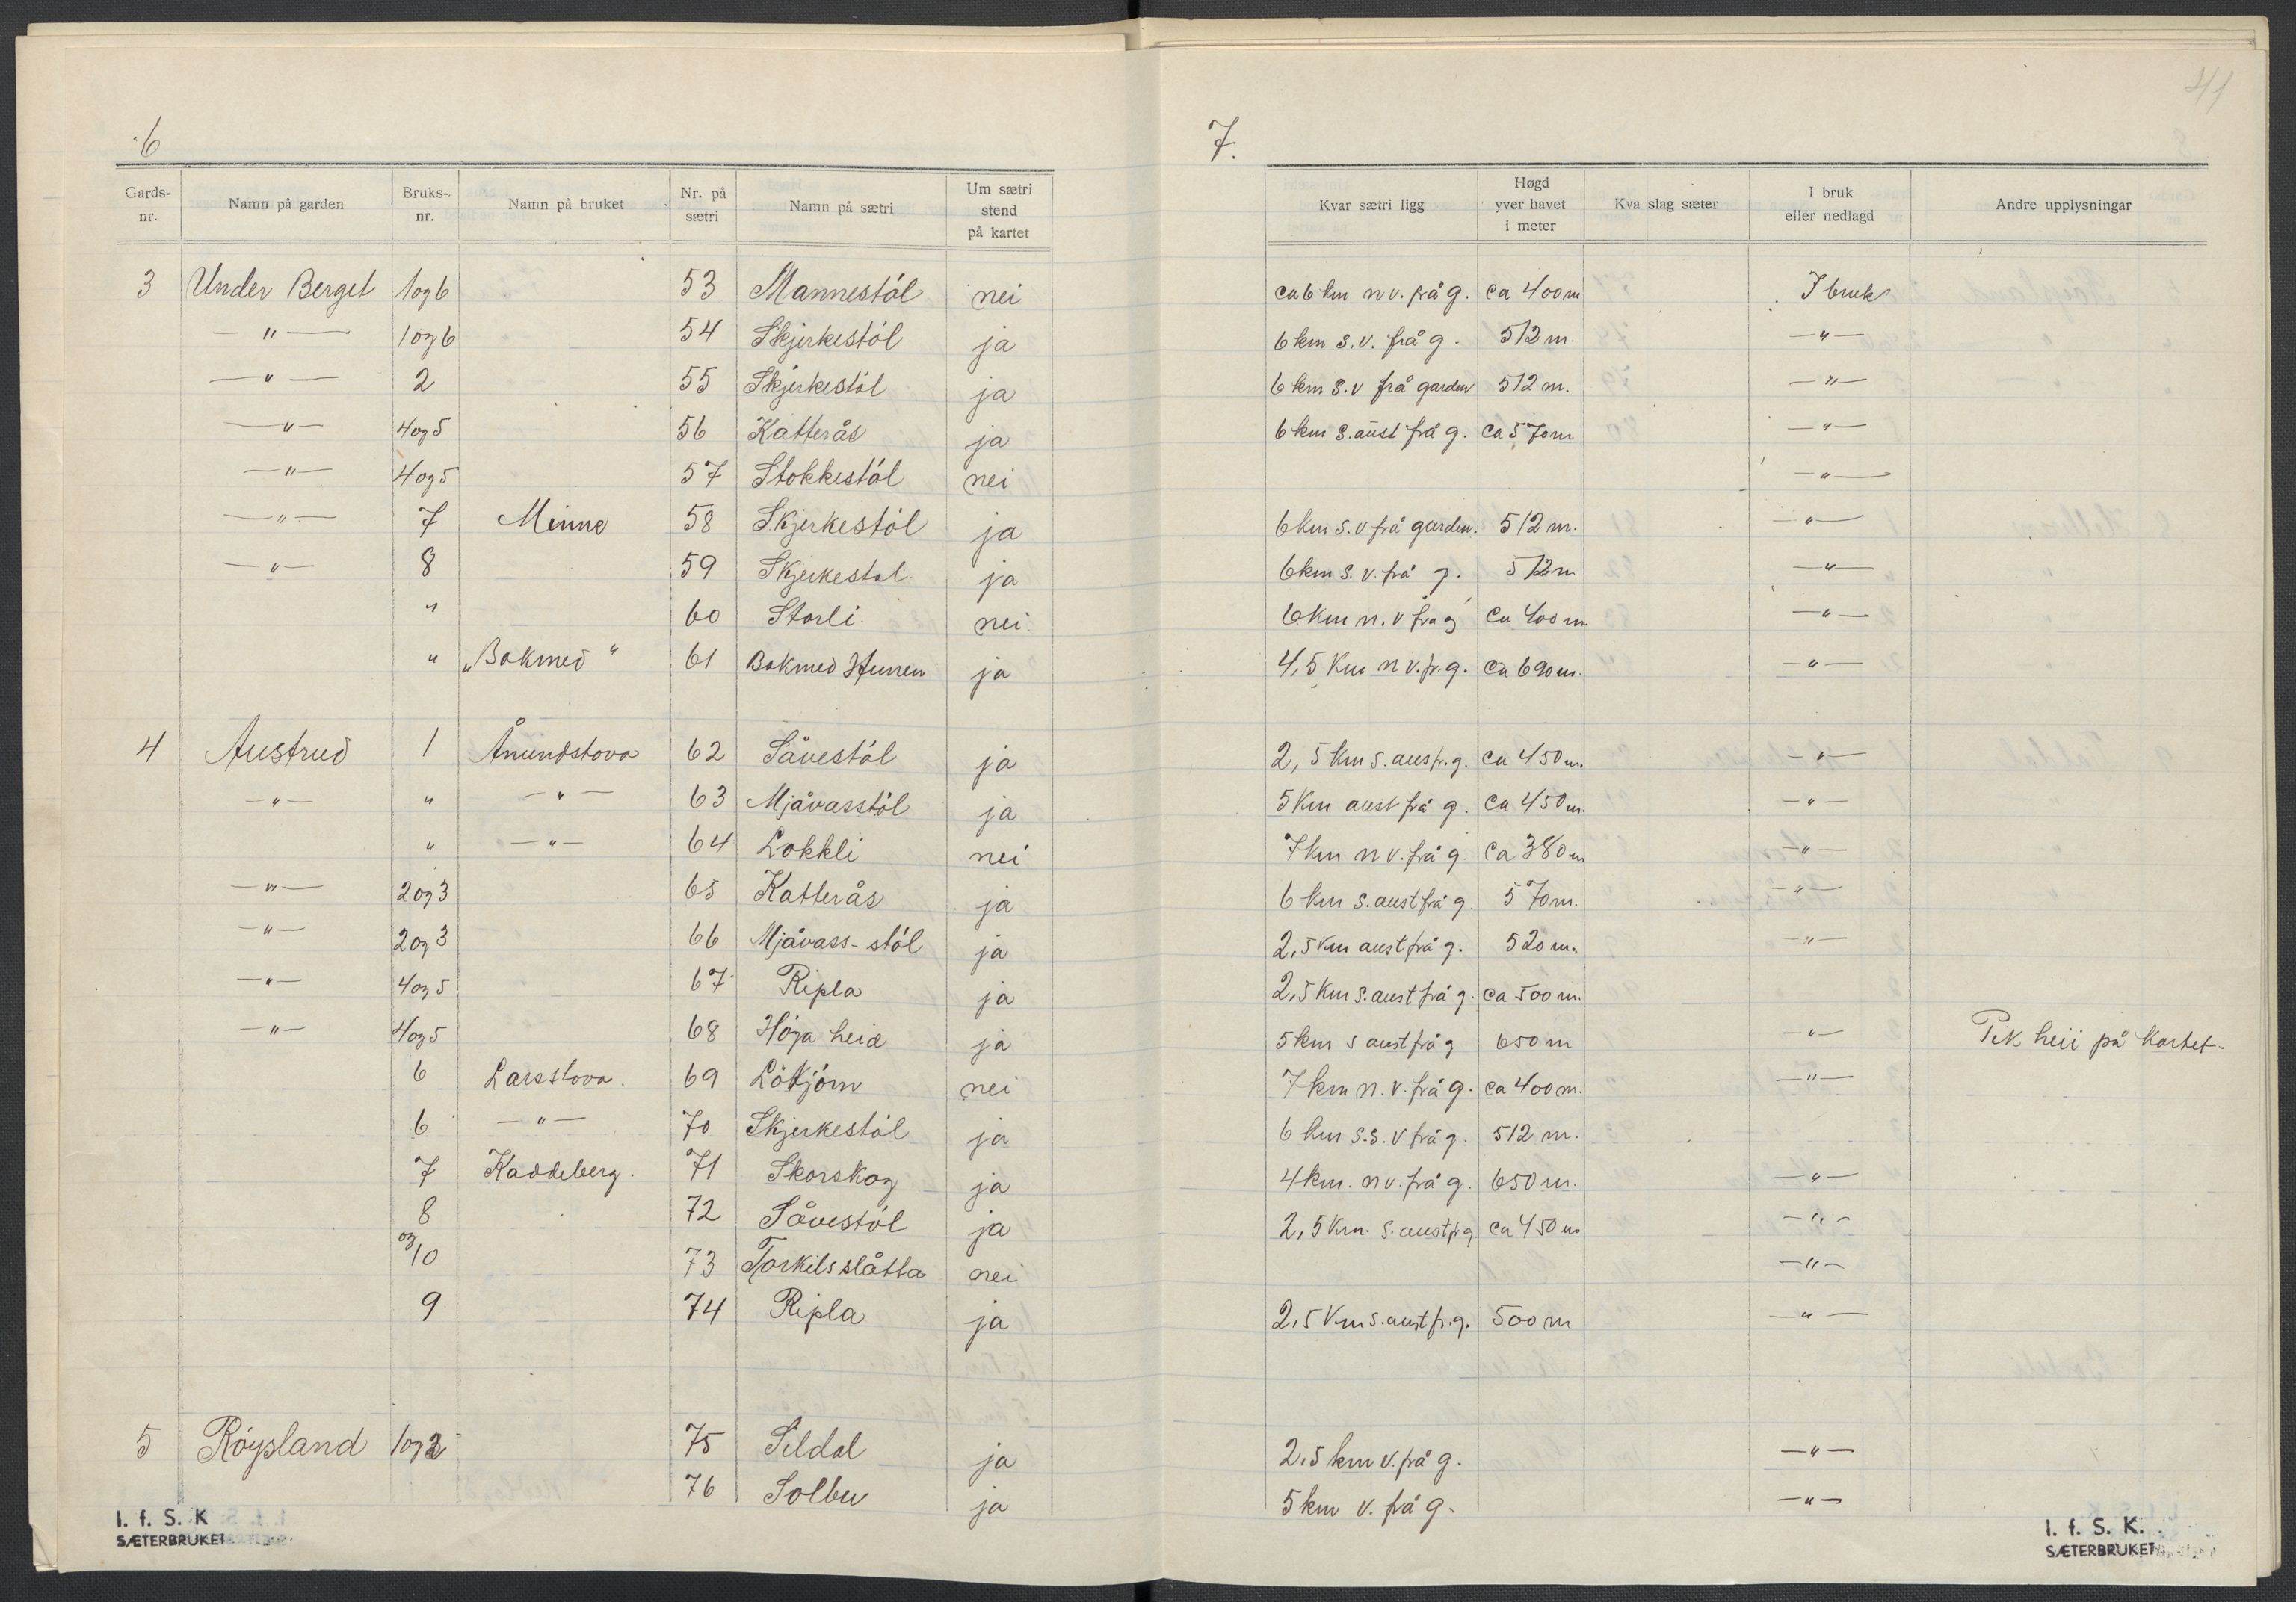 6
Gards-nr. Namn på garden Bruks-nr. Namn på bruket Nr. på sætri Namn på sætri Um sætri stend på kartet
3 Under Berget 1og6 53 Mannestól nei
—"— 1og6 54 Skjerkestól ja
—"— 2 55 Skjerkestól ja
—"— 4og5 56 Katterås ja
—"— 4og5 57 Stokkestól nei
—"— 7 Minne 58 Skjerkestól ja
—"— 8 59 Skjerkestol. ja
" 60 Storli nei
" "Bakmed" 61 Bakmed Hunen ja
4 Austrud 1 Åmundstova 62 Såvestól ja
—"— " —"— 63 Mjåvasstól ja
" —"— 64 Lokkli nei
—"— 2og3 65 Katterås ja
—"— 2og3 66 Mjåvass-stól ja
—"— 4og5 67 Ripla ja
—"— 4og5 68 Höga heia ja
6 Larsstova. 69 Lötjörn nei
6 —"— 70 Skjerkestól ja
7 Kaddeberg. 71 Skorskog ja
8 72 Såvestól ja
og 10 73 Torkilsslåtta nei
9 74 Ripla ja
5 Röysland 1og2 75 Sildal ja
76 Solbu ja
I. f. S. K
SÆTERBRUKET
41
7.
Kvar sætri ligg Høgd yver havet i meter Kva slag sæter I bruk eller nedlagd Andre upplysningar
ca 6 km n v. frå g. ca 400 m I bruk
6 km s.v. frå g. 512 m. —"—
6 km s.v frå garden 512 m. —"—
6 km s.aust frå g. ca 570m —"—
—"—
6 km s.v frå garden. 512 m. —"—
6 km s.v. frå g. 512m —"—
6 km n.v frå g ca 400 m —"—
4,5 km n v. fr. g. ca 690 m. —"—
2,5 km s. aust fr. g. ca 450 m. —"—
5 km aust frå g. ca 450 m. —"—
7 km n v. frå g. ca 380 m —"—
6 km s. aust frå g. 570 m. —"—
2,5 km aust frå g. 520 m. —"—
2,5 km s. aust frå g. ca 500 m.
5 km s aust frå g 650 m —"— Pik heii på kartet.
7 km n. v. frå g. ca 400 m. —"—
6 km s.s. v frå g. 512 m.
4 km. n v. frå g. 650 m. —"—
2,5 km. s. aust fr g. ca 450 m —"—
—"—
2,5 km s. aust fr. g. 500 m —"—
2,5 km v. frå g. —"—
5 km v. frå g. —"—
I. f. S. K.
SÆTERBRUKET